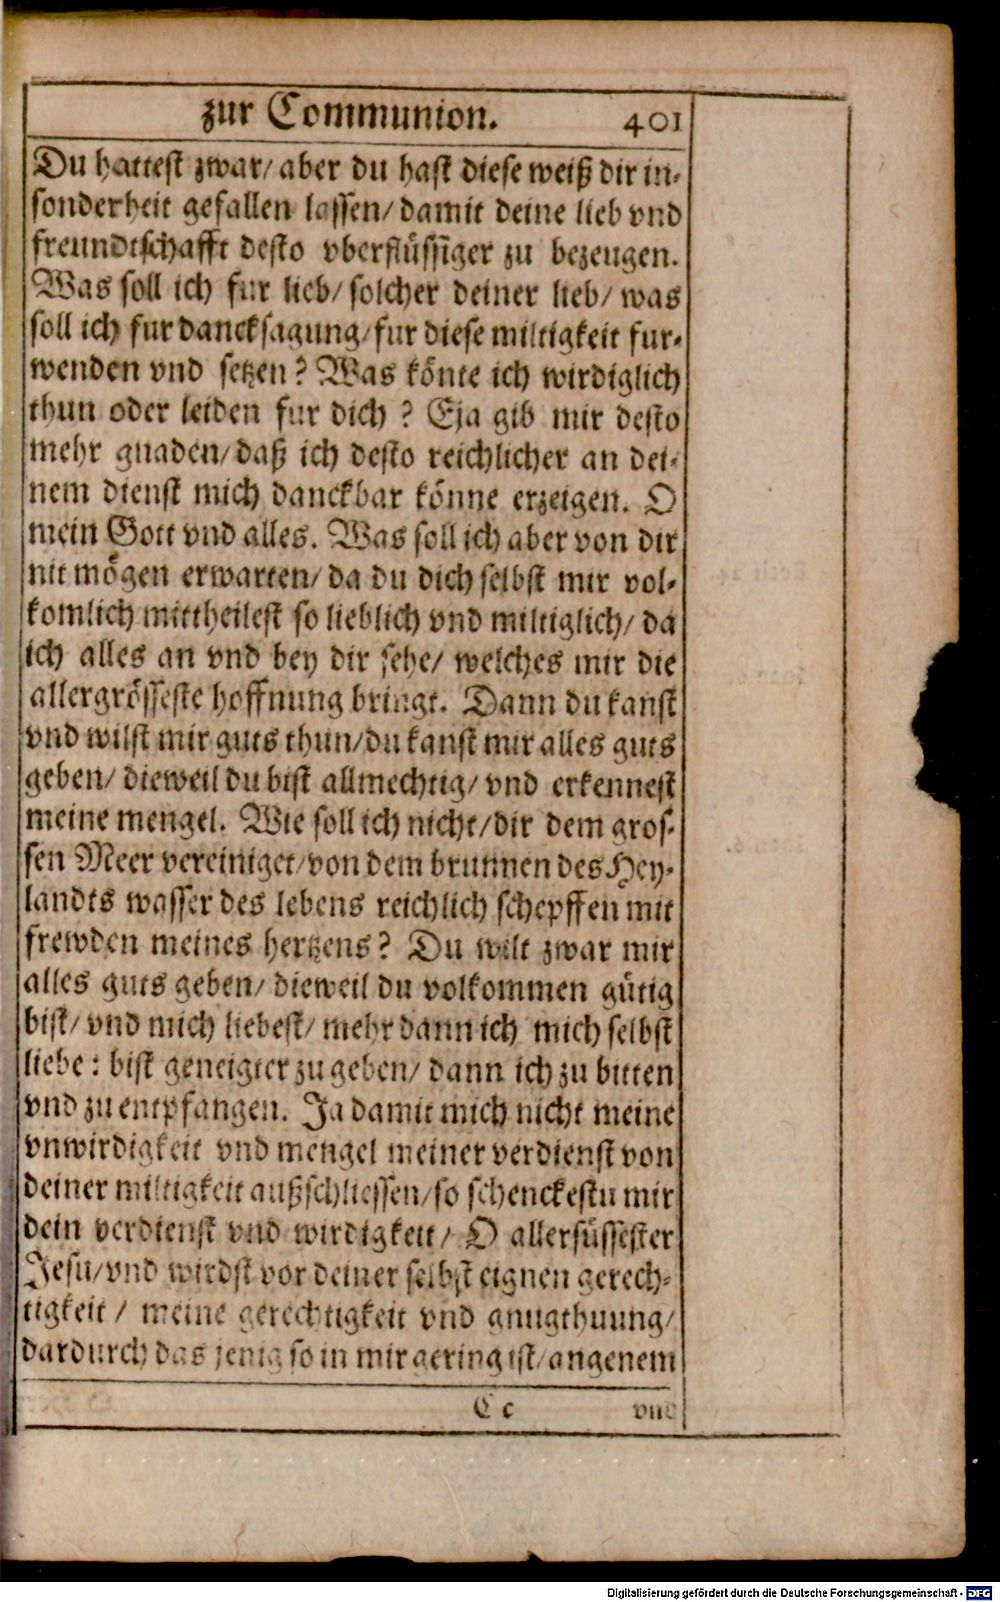 zur Communion. 401
Du hattest zwar/ aber du hast diese weiß dir in-
sonderheit gefallen lassen/ damit deine lieb vnd
freundtschafft desto vberflüssiger zu bezeugen.
Was soll ich fur lieb/ solcher deiner lieb/ was
soll ich fur dancksagung/ fur diese miltigkeit fur-
wenden vnd setzen? Was könte ich wirdiglich
thun oder leiden fur dich? Eja gib mir desto
mehr gnaden/ daß ich desto reichlicher an dei-
nem dienst mich danckbar könne erzeigen. O
mein Gott vnd alles. Was soll ich aber von dir
nit mögen erwarten/ da du dich selbst mir vol-
komlich mittheilest so lieblich vnd miltiglich/ da
ich alles an vnd bey dir sehe/ welches mir die
allergrösseste hoffnung bringt. Dann du kanst
vnd wilst mir guts thun/ du kanst mir alles guts
geben/ dieweil du bist allmechtig/ vnd erkennest
meine mengel. Wie soll ich nicht/ dir dem gros-
sen Meer vereiniget/ von dem brunnen des Hey-
landts wasser des lebens reichlich schepffen mit
frewden meines hertzens? Du wilt zwar mir
alles guts geben/ dieweil du volkommen gütig
bist/ vnd mich liebest/ mehr dann ich mich selbst
liebe: bist geneigter zu geben/ dann ich zu bitten
vnd zu entpfangen. Ja damit mich nicht meine
vnwirdigkeit vnd mengel meiner verdienst von
deiner miltigkeit außschliessen/ so schenckestu mir
dein verdienst vnd wirdigkeit/ O allersüssester
Jesu/ vnd wirdst vor deiner selbst eignen gerech-
tigkeit/ meine gerechtigkeit vnd gnugthuung/
dardurch das jenig so in mir gering ist/ angenem
C c vnd
Digitalisierung gefördert durch die Deutsche Forschungsgemeinschaft - DFG